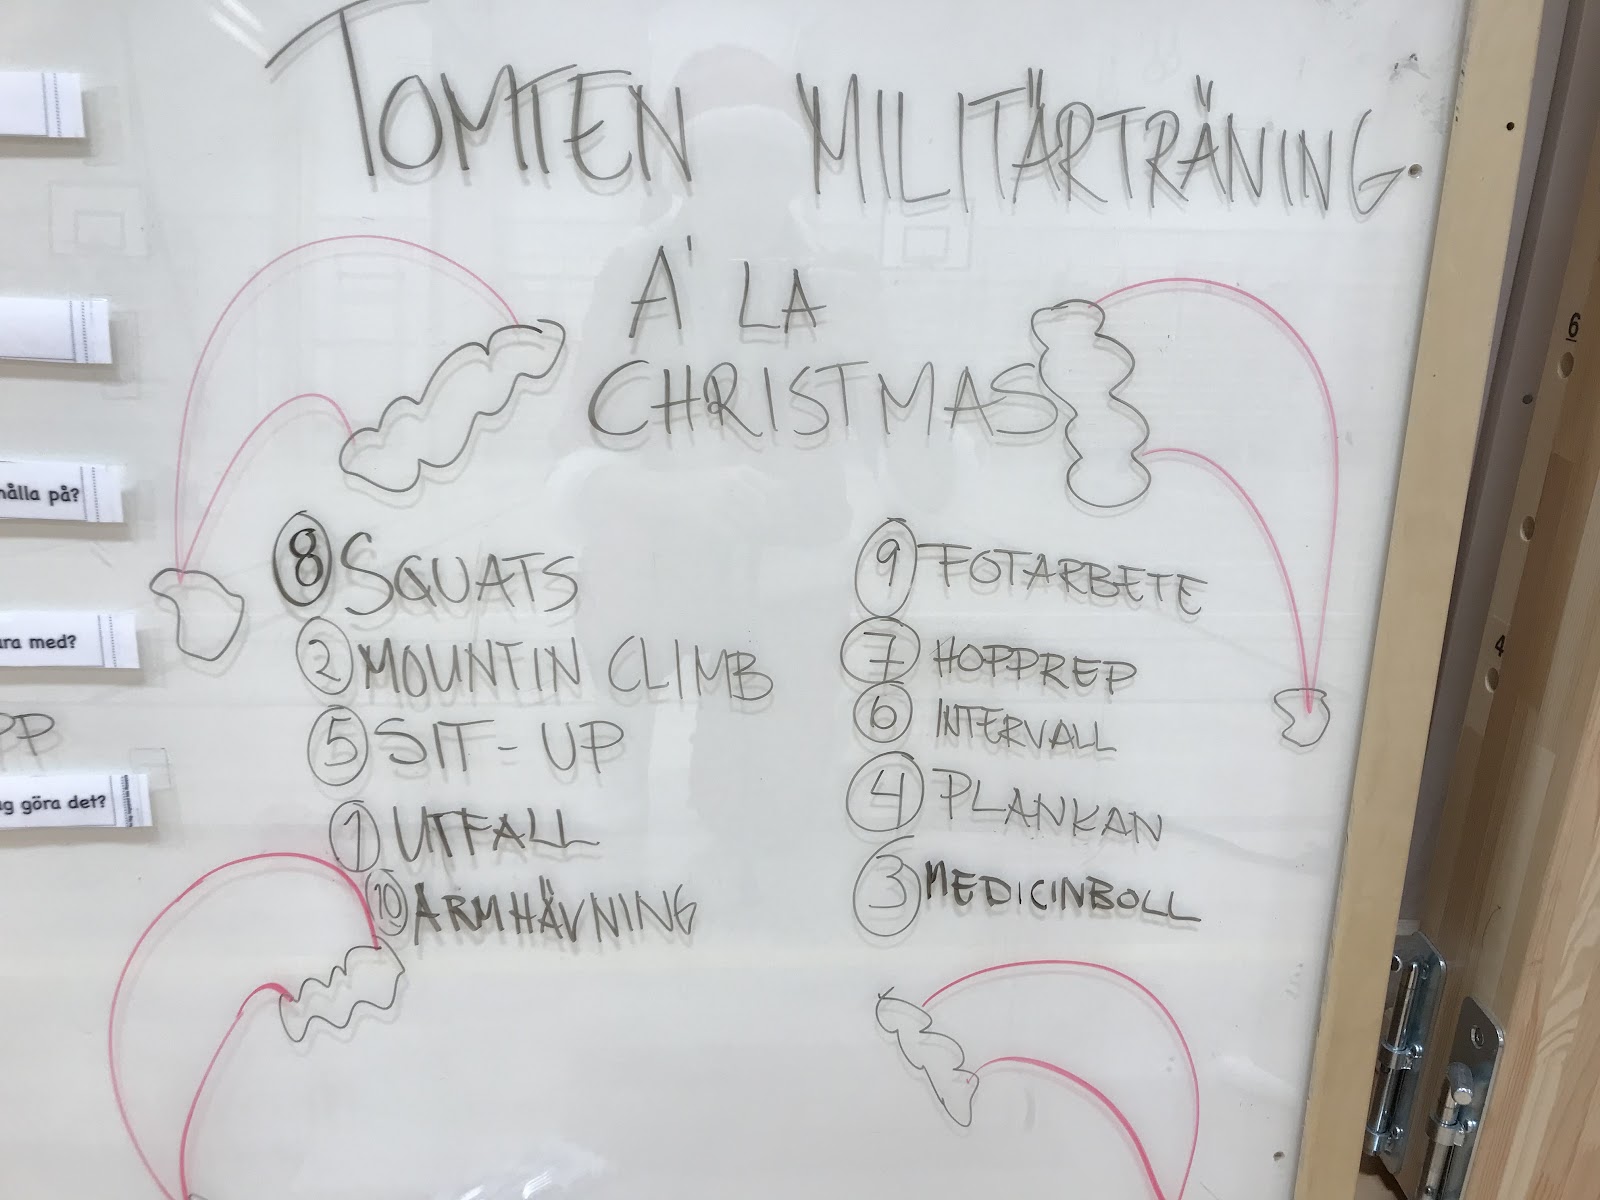 TOMTEN MILITÄRTRÄNING
Á LA
CHRISTMAS
8 SQUATS
2 MOUNTIN CLIMB
5 SIT-UP
1 UTFALL
10 ARMHÄVNING
9 FOTARBETE
7 HOPPREP
6 INTERVALL
4 PLANKAN
3 MEDICINBOLL
hålla på?
ara med?
PP
ag göra det?
6
4